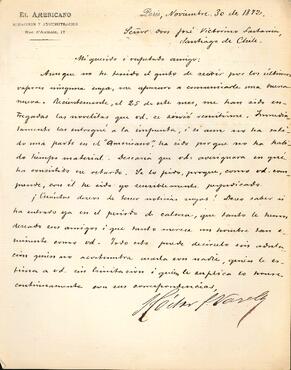 EL AMERICANO
REDACCION Y ADMINISTRACION
Paris, Noviembre, 30 de 1872.
Señor don José Victorino Lastarria,
Santiago de Chile.
Mi querido i respetado amigo;
Aunque no he tenido el gusto de recibir por los últimos
vapores ninguna suya, me apresuro a comunicarle una buena
nueva. Recientemente, el 25 de este mes, me han sido en-
tregadas las novelitas que vd. se sirvió remitirme. Inmedia-
tamente las entregué a la imprenta, i si aun no ha sali-
do una parte en el "Americano", ha sido por que no ha ha-
bido tiempo material. Desearia que vd. averiguara en qué
ha consistido el retardo. Se lo pido, porque, como vd. com-
prende, con él he sido yo sensiblemente perjudicado.
¡Cuántos deseos de tener noticias suyas! Deseo saber si
ha entrado ya en el período de calma, que tanto le hemos
deseado sus amigos i que tanto merece un hombre tan
eminente como vd. Todo esto puede decirselo sin adula-
cion quién no acostumbra usarla con nadie, quién le es-
tima a vd. sin limitacion i quién le suplica lo honre
continuamente con sus correspondencias,
Héctor F. Varela